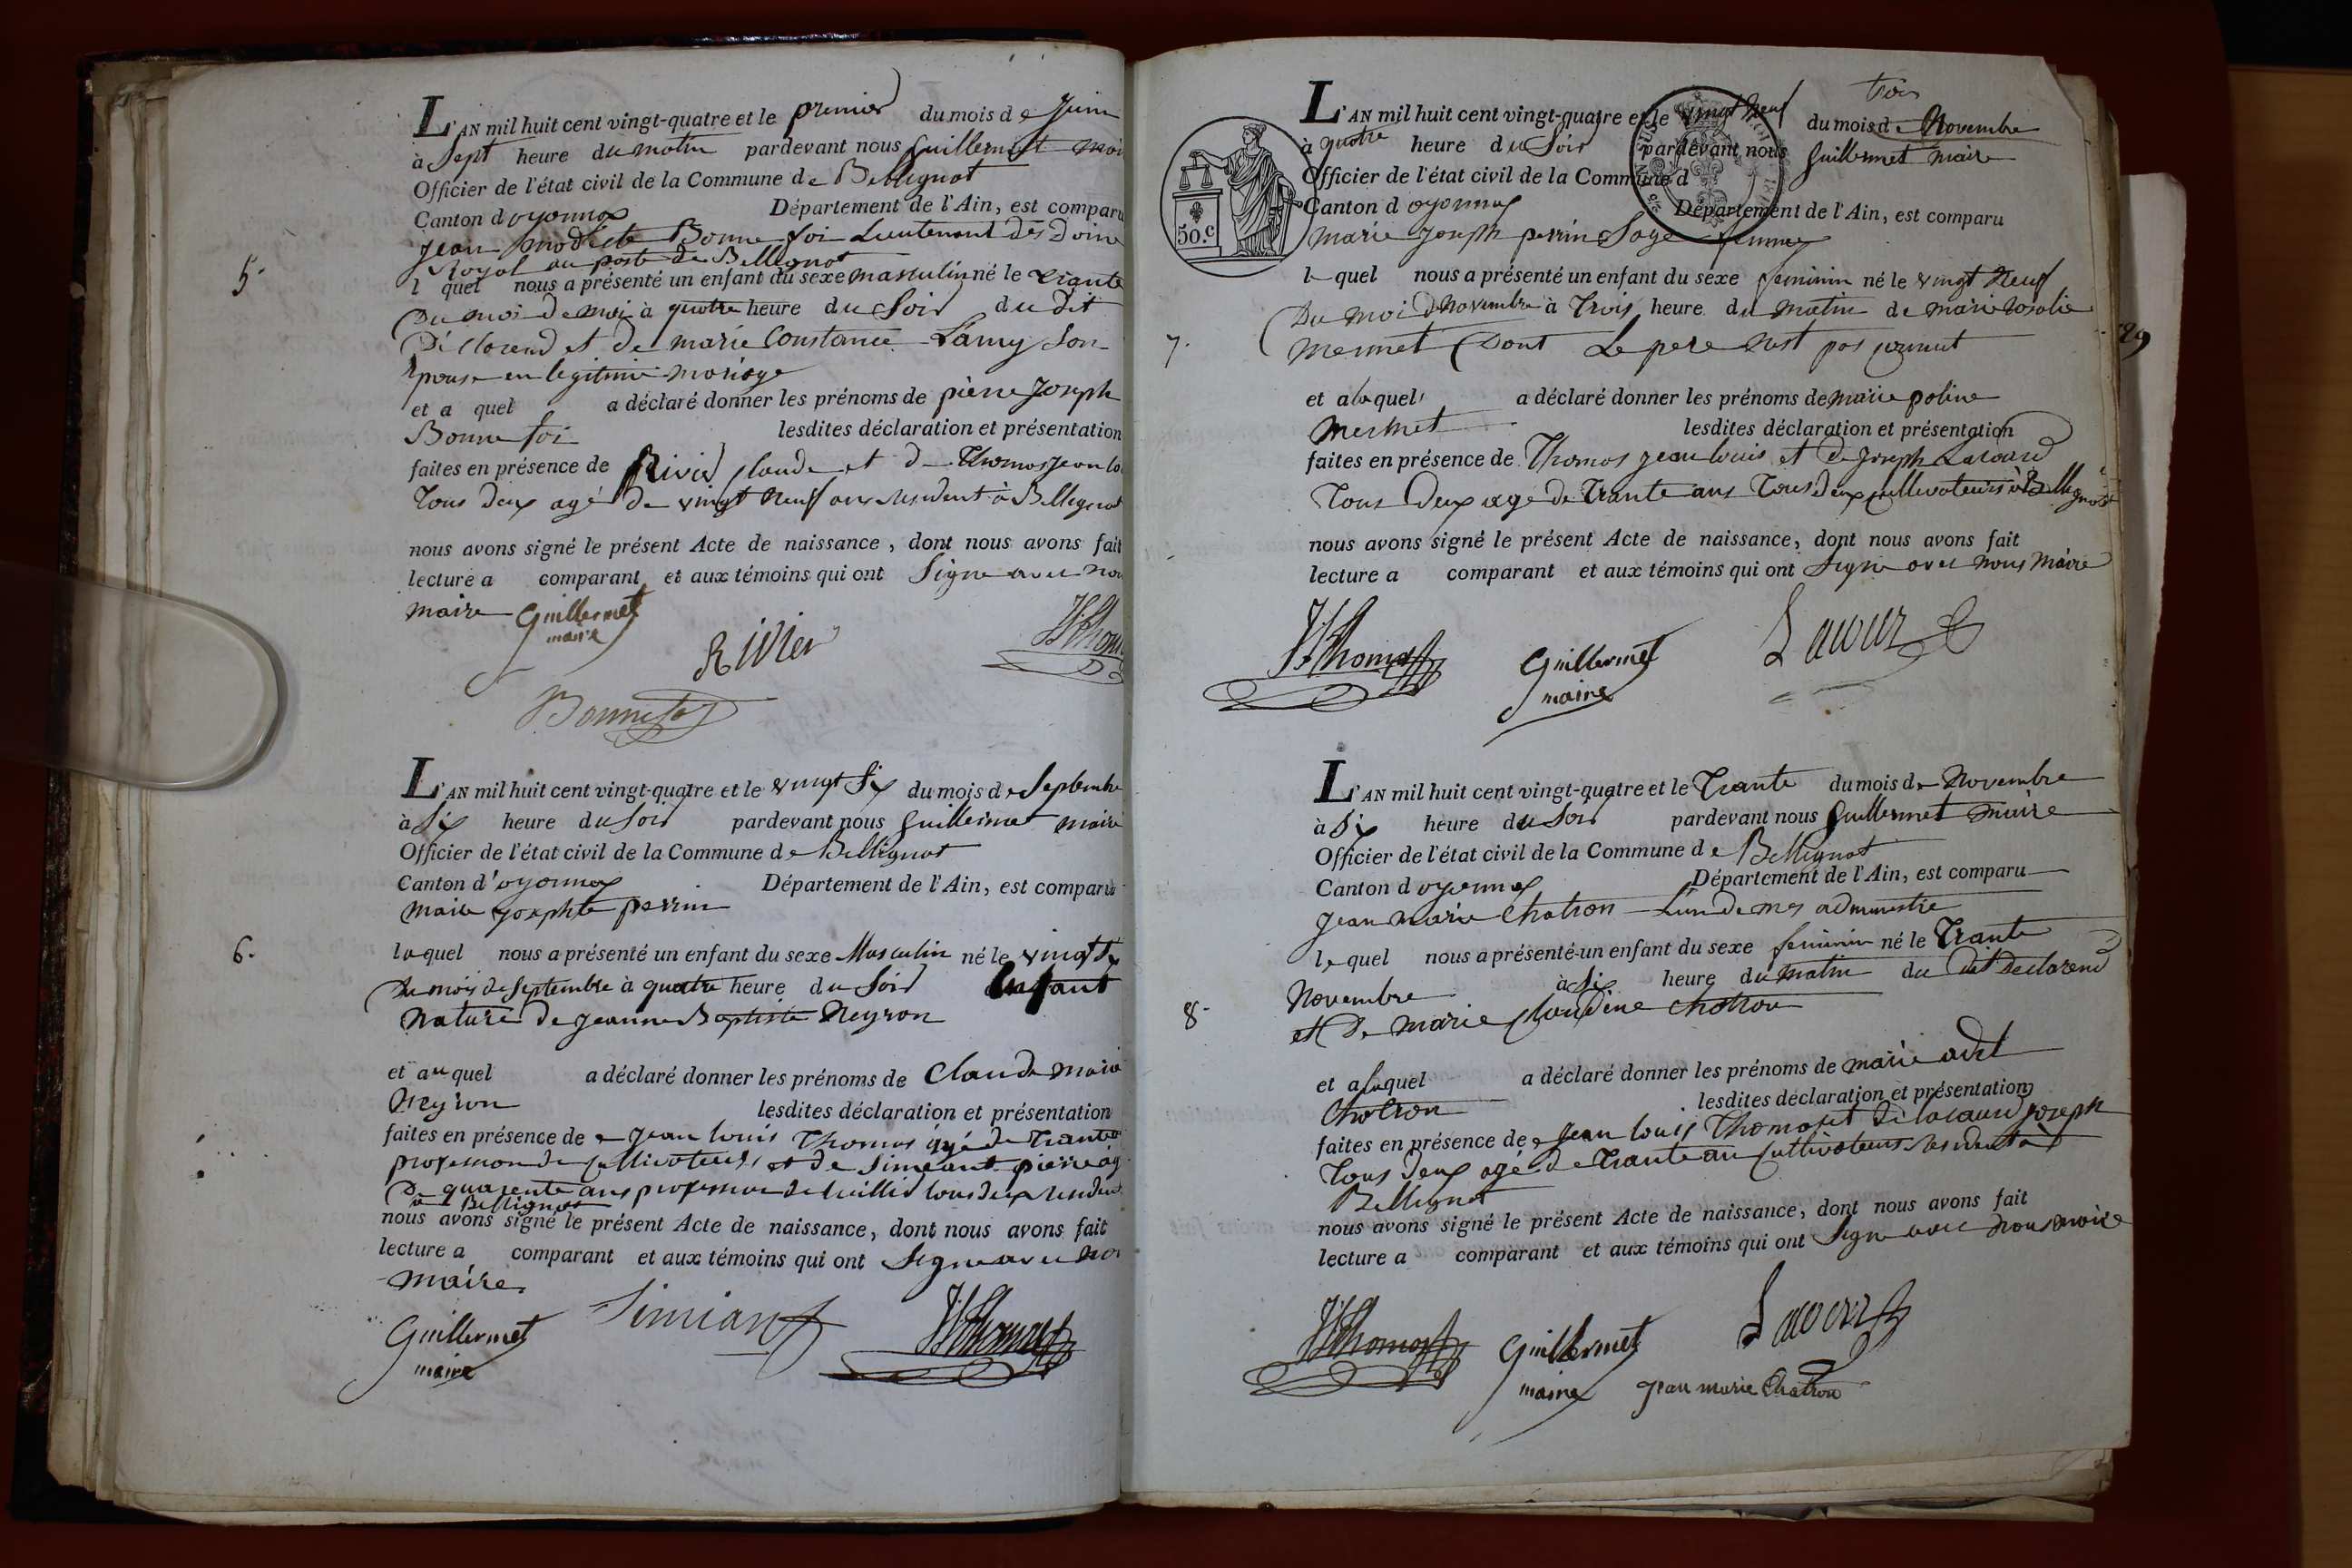 L'AN mil huit cent vingt-quatre et le premier du mois de Juin
à Sept heure du matin pardevant nous Guillermet mair
Officier de l'état civil de la Commune de Bellignat
Canton d oyonnax Département de l'Ain, est comparu
Jean modeste Bonne foi Lieutenant des Doine
Royal au poste de Bellignat
5.
l quel nous a présenté un enfant du sexe masculin né le trante
Du moi de mai à quatre heure du Soir du dit
Déclarend et de marie Constance Lamy Son
Epouse en legitime mariage
et a quel a déclaré donner les prénoms de pierre Joseph
Bonne foi lesdites déclaration et présentation
faites en présence de Rivier Claude et de Thomas Jean lo
Tous deux agé de vingt neuf ans resident à Bellignat
nous avons signé le présent Acte de naissance, dont nous avons fait
lecture a comparant et aux témoins qui ont Signe avec nou
maire Guillermet
maire
Rivier
JLThom
Bonnefoy
L'AN mil huit cent vingt-quatre et le vingt Six du mois de Septembre
à Six heure du Soir pardevant nous Guillermet maire
Officier de l'état civil de la Commune de Bellignat
Canton d'oyonnax Département de l'Ain, est comparu
marie Josephte perrin
6.
laquel nous a présenté un enfant du sexe Masculin né le vingt Six
Du mois de Septembre à quatre heure du Soir Enfant
naturé de Jeanne Baptiste Neyron
et au quel a déclaré donner les prénoms de Claude marie
Neyron lesdites déclaration et présentation
faites en présence de Jean louis Thomas agé de Trante
profession de Cultivateurs et de Simeant pierre ag
De quarente ans profession de tous deux resident
à Bellignat
nous avons signé le présent Acte de naissance, dont nous avons fait
lecture a comparant et aux témoins qui ont Signe avec nou
maire
Guillermet
maire
Simiant
JLThomas
trois
L'AN mil huit cent vingt-quatre et le vingt neuf du mois de Novembre
à quatre heure du Soir pardevant nous Guillermet maire
Officier de l'état civil de la Commune d
Canton d oyonnax Département de l'Ain, est comparu
50.c
marie Joseph perrin Sage femme
l quel nous a présenté un enfant du sexe feminin né le vingt Neuf
Du moi Novembre à Trois heure du matin de marie rosalie
7.
Mermet Dont Le pere nest pas connut
29
et a laquel a déclaré donner les prénoms de marie poline
Mermet lesdites déclaration et présentation
faites en présence de Thomas Jean louis et de Joseph Lacourd
Tous Deux age de Trante ans Tous deux Cullevateurs à Bellignat
nous avons signé le présent Acte de naissance, dont nous avons fait
lecture a comparant et aux témoins qui ont Signe avec nous Maire
JLThomas
Guillermet
maire
L'AN mil huit cent vingt-quatre et le Trante du mois de Novembre
à Six heure du Soir pardevant nous Guillermet maire
Officier de l'état civil de la Commune de Bellignat
Canton d oyonnax Département de l'Ain, est comparu
Jean Marie Chatron L'un de mes administre
le quel nous a présenté un enfant du sexe feminin né le Trante
Novembre à Six heure du matin du dit Declarend
8.
et De marie Claudine Chatron
et a laquel a déclaré donner les prénoms de marie adel
Chatron lesdites déclaration et présentation
faites en présence de Jean louis Thomas et De lacaurd Joseph
Tous deux agé de Trante an Cultivateurs resident à
Bellignat
nous avons signé le présent Acte de naissance, dont nous avons fait
lecture a comparant et aux témoins qui ont Signe avec nous maire
JLThomas
Guillermet
maire
jean marie Chatron